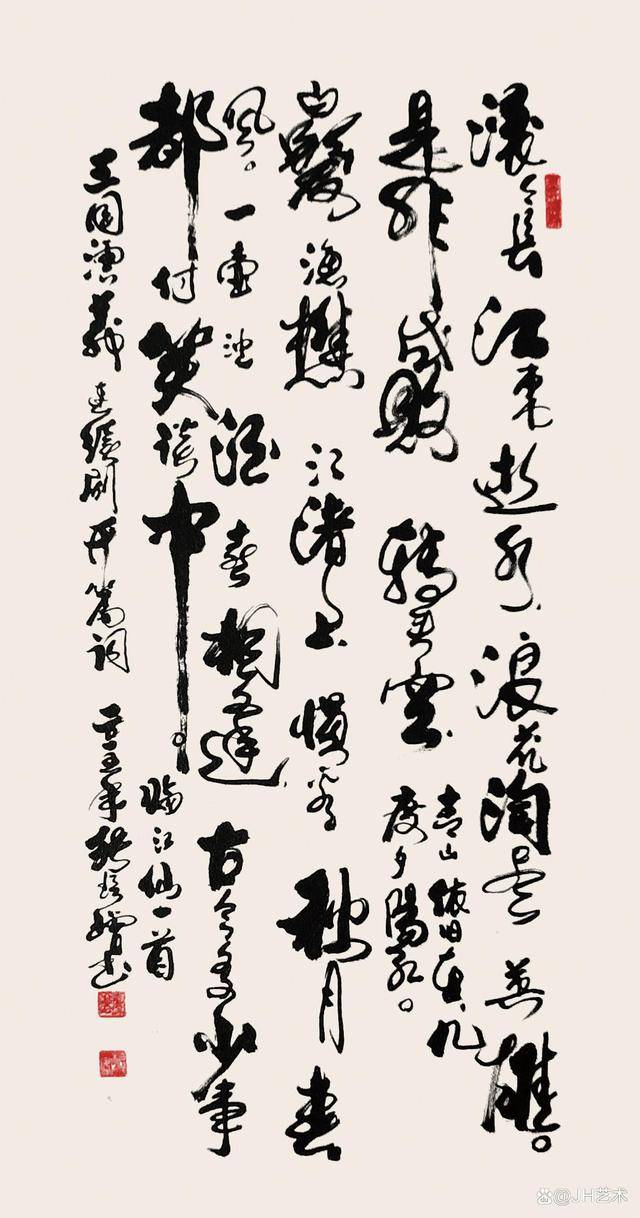 滾滾長江東逝水浪花淘尽英雄。
是非成敗轉頭空
青山依旧在几
度夕陽紅。
白髮漁樵江渚上慣看秋月春
風。一壶浊酒喜相逢古今多少事
都付笑談中。
臨江仙一首
三国演義連續劇开篇词 辛丑年 书
@JH艺术